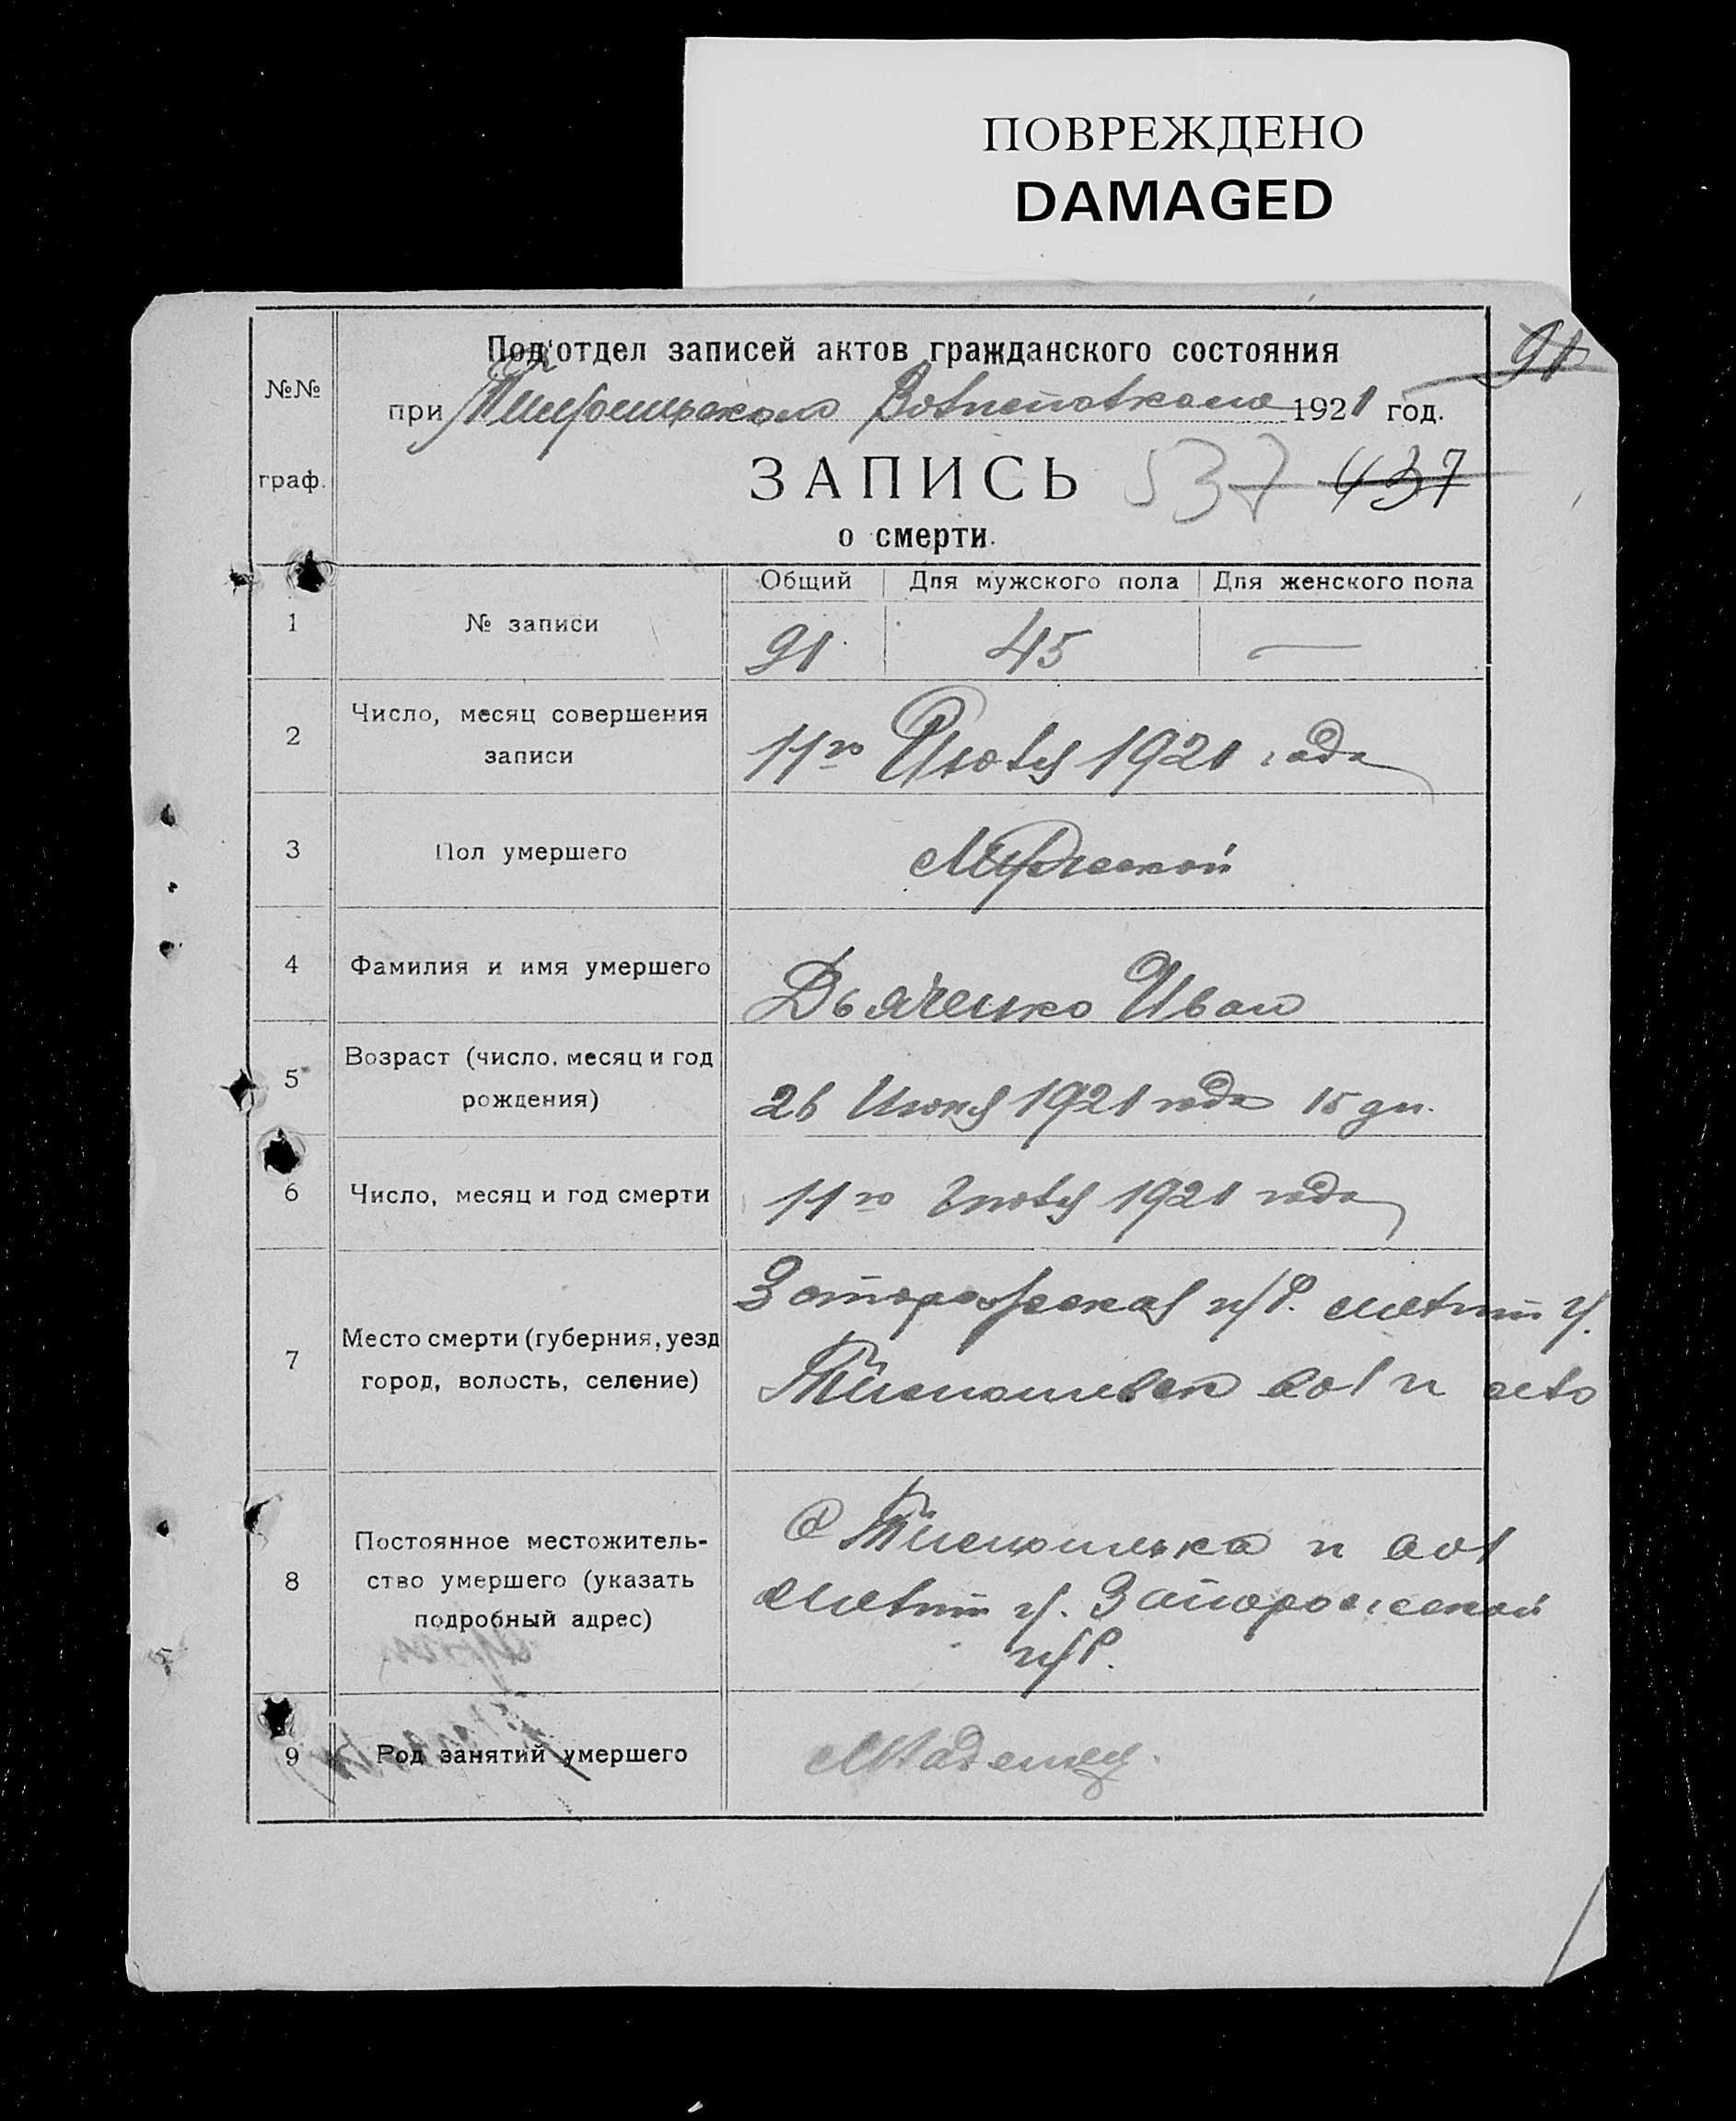 ПОВРЕЖДЕНО
DAMAGED
91
Под'отдел записей актов гражданского состояния
№№
при Волисполкоме 1921 год.
граф.
ЗАПИСЬ 537 437
о смерти.
Общий Для мужского пола Для женского пола
1 № записи 91 45 —
2 Число, месяц совершения
записи 11го Июля 1921 года
3 Пол умершего Мужеской
4 Фамилия и имя умершего Дьяченко Иван
5 Возраст (число, месяц и год
рождения) 26 Июня 1921 года 15 дн.
6 Число, месяц и год смерти 11го Июля 1921 года
Запорожская губ. Мелит у.
7 Место смерти (губерния, уезд
город, волость, селение) вол и село
8 Постоянное местожитель-
ство умершего (указать
подробный адрес)
с и вол
Мелит у. Запорожской
губ.
9 Род занятий умершего Младенец.